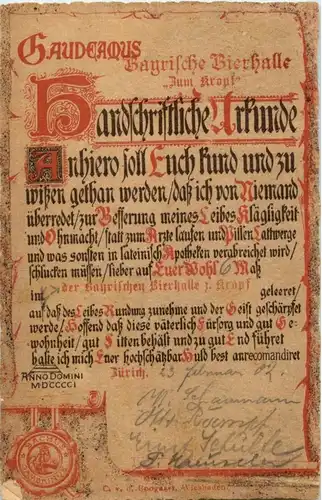 GAUDEAMUS
Bayrische Bierhalle
"Zum Kropf"
Handschriftliche Urkunde
Anhiero soll Euch kund und zu
wißen gethan werden/daß ich von Niemand
überredet/zur Besserung meines Leibes Klägligkeit
und Ohnmacht/statt zum Arzte laufen und Pillen Lattwerge
und was sonsten in lateinisch Apotheken verabreichet wird/
schlucken müssen/lieber auf Euer Wohl 6 Maß
im der Bayrischen Bierhalle z. Kropf geleeret/
auf daß des Leibes Rundung zunehme und der Geist geschärpfet
werde/Hoffend daß diese väterlich Fürsorg und gut Ge-
wohnheit/gut Sitten behält und zu gut End führet
halte ich mich Euer hochschätzbar Huld best anrecomandiret
ANNO DOMINI
MDCCCCI
Zürich, 23 Februar 02.
C. v. d. Boogaart, Wiesbaden